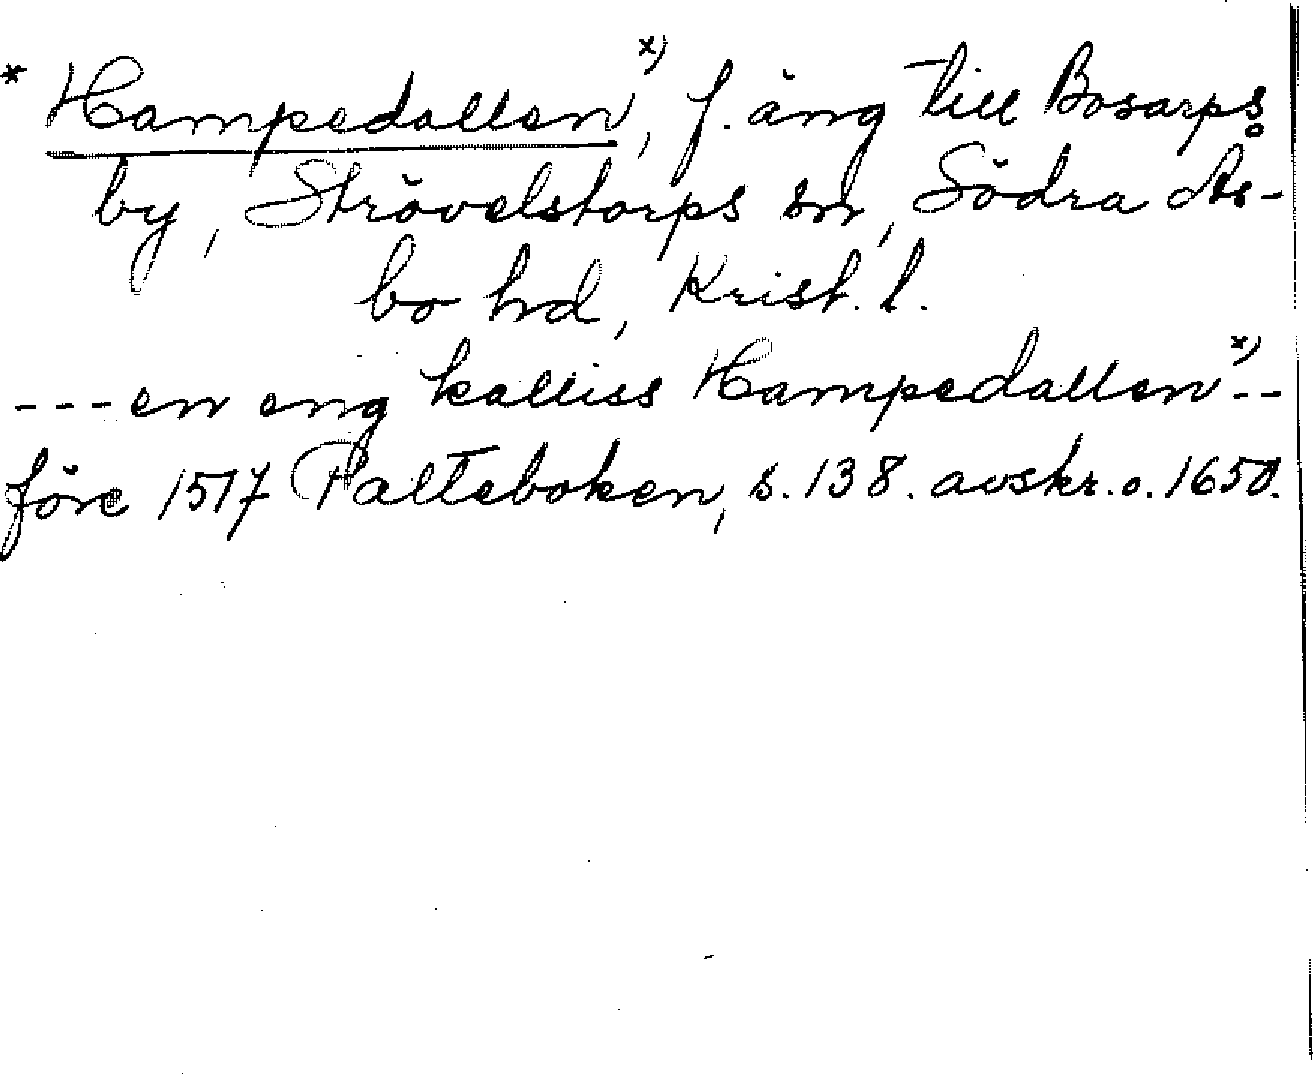 * Hampedallen x), f. äng till Bosarps
by, Strövelstorps sn, Södra Ås-
bo hd, Krist. l.
---en eng kalliss Hampedallen x)--
före 1517 Palteboken, s. 138. avskr. o. 1650.